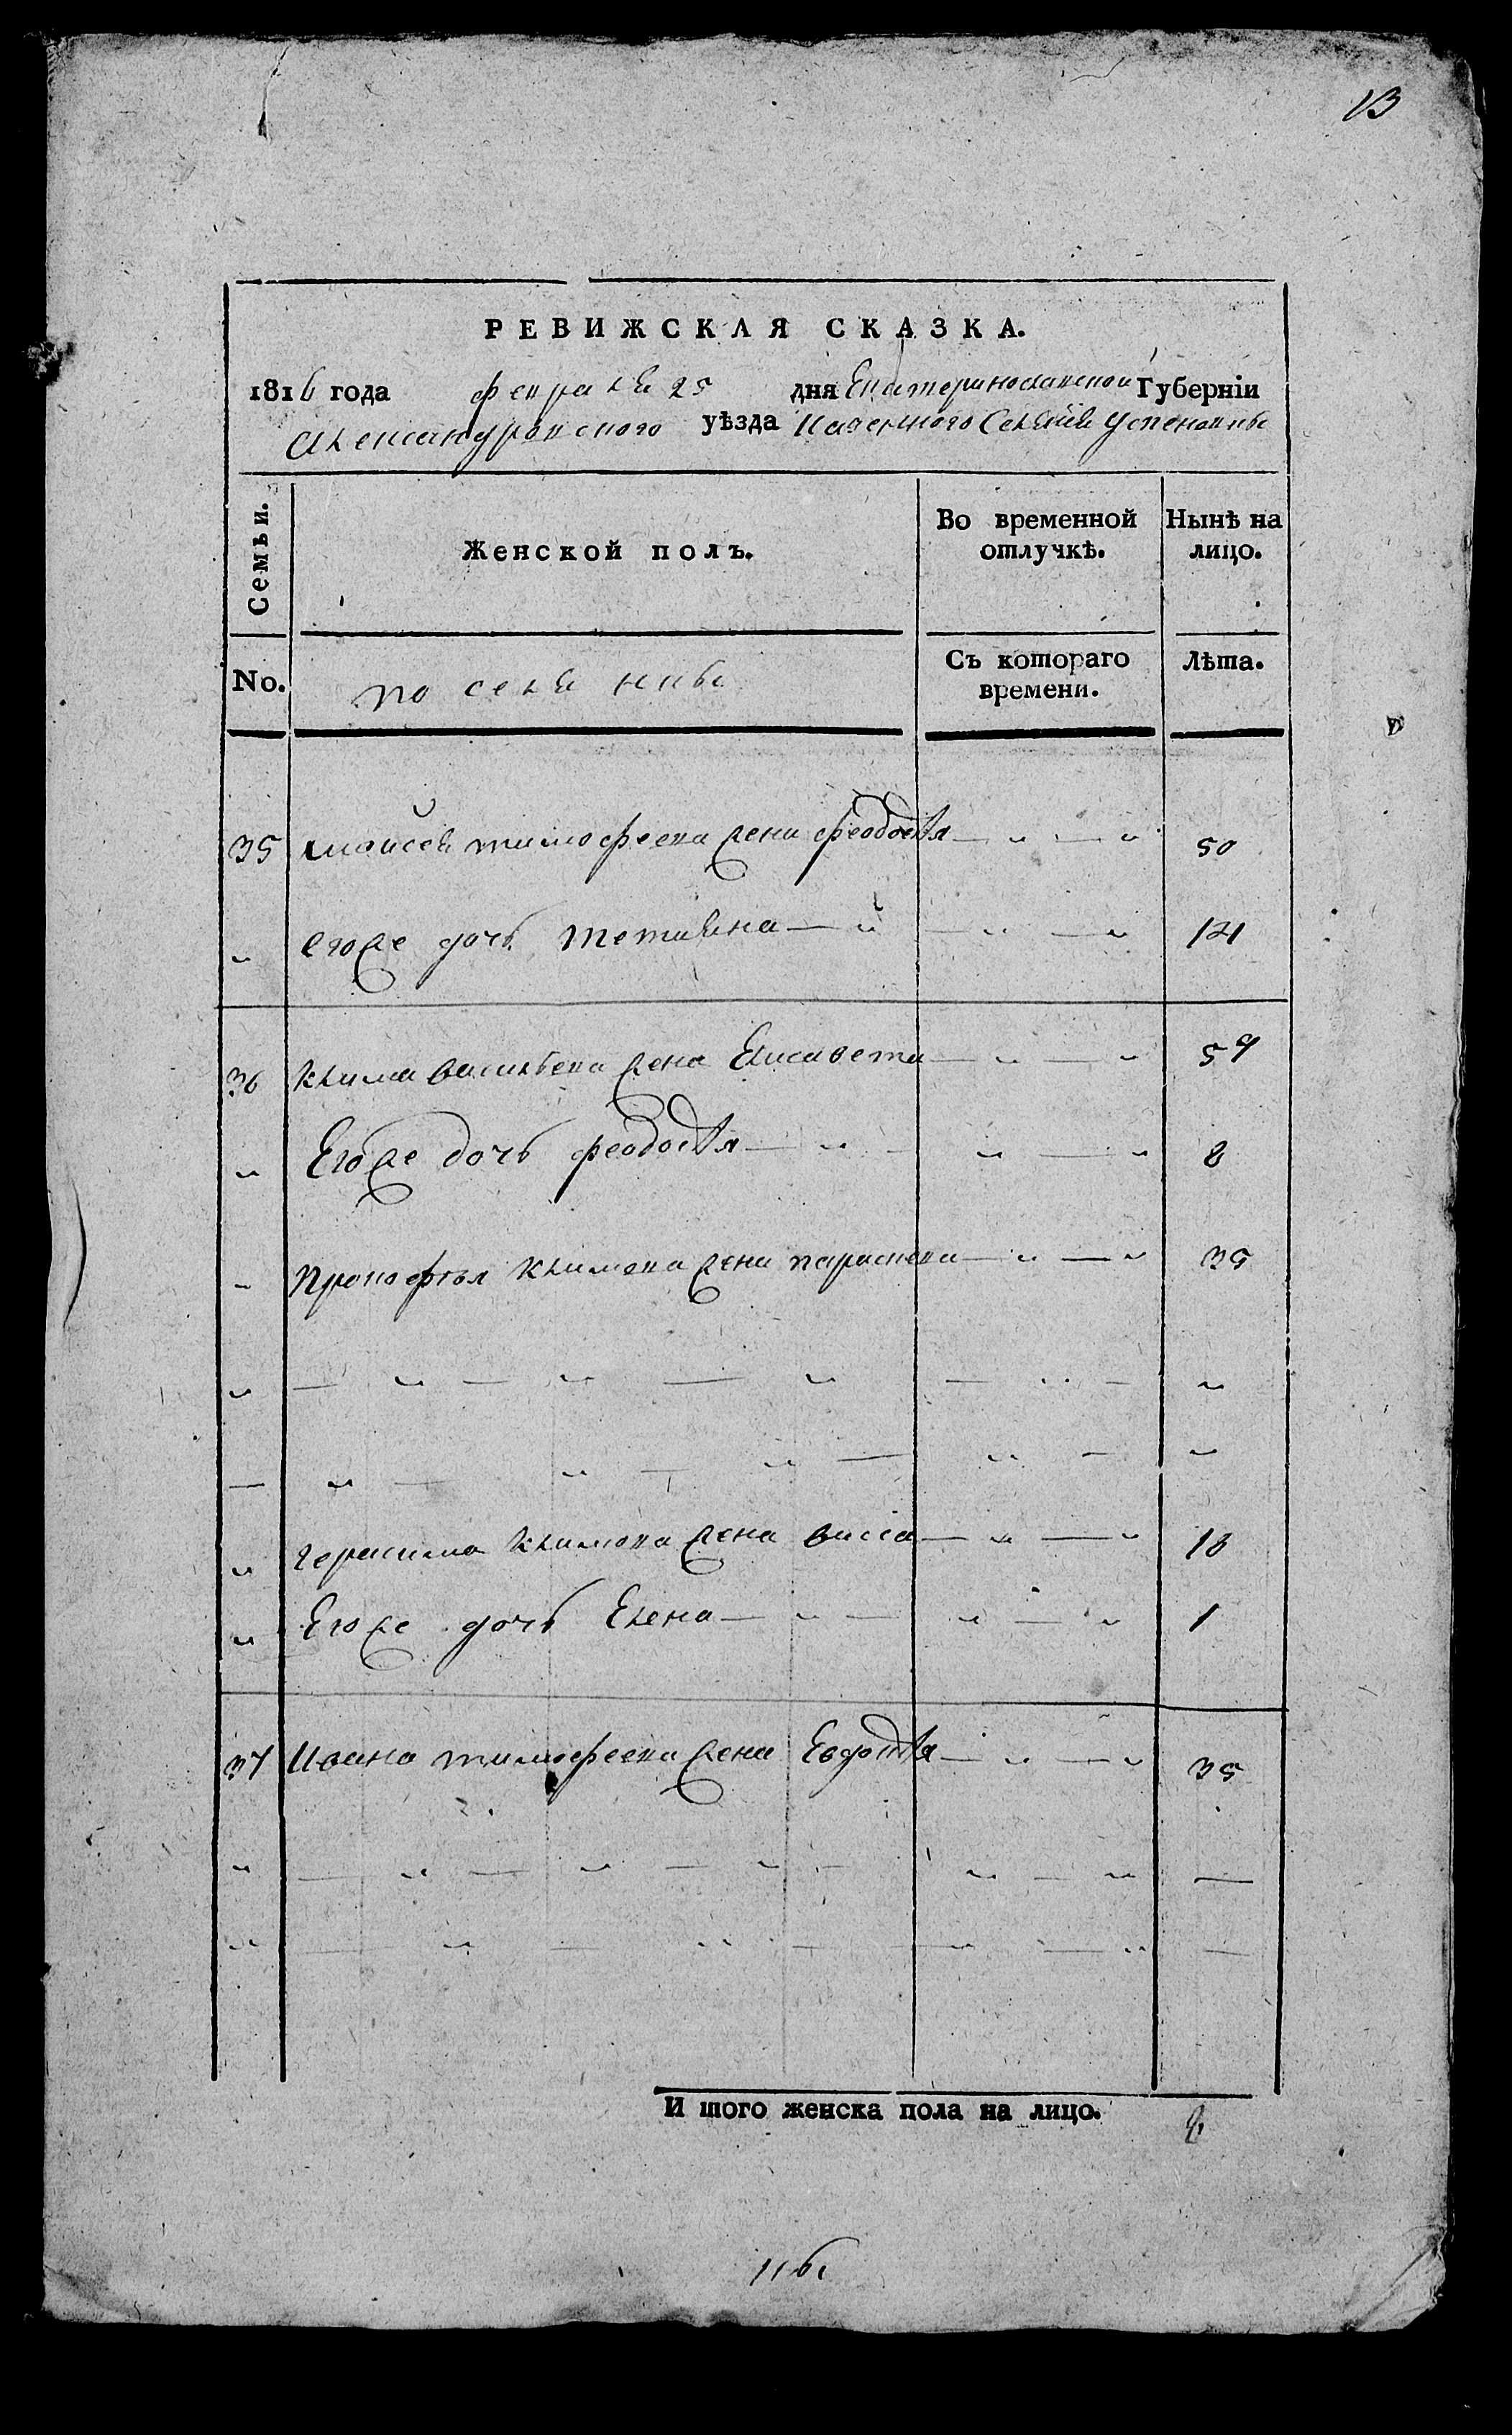 13
РЕВИЖСКАЯ СКАЗКА.
1816 года февраля 25 дня Екатеринославской Губерніи
Александровского уѣзда Казенного Селенія Успеновкы
Семьи. Женской полъ. Во временной отлучкѣ. Нынѣ на лицо.
No. поселянкы Съ котораго времени. Лѣта.
35 Мойсея тимофеева жена феодосия — " — " 50
" егоже дочь Тетияна — " — " — " 14
36 Клима васильева жена Елисавета — " — " 59
" Егоже дочь феодосия — " — " — " 8
" Прокофъя Климова жена параскева — " — " 35
" — " — " — " — " — "
— " — " — " — " — "
" герасима Климова жена васса — " — " 18
" Егоже дочь Елена — " — " — " 1
37 Ивана тимофеева жена Евдокия — " — " 35
" — " — " — " — " — " —
" — " — " — " — " —
И того женска пола на лицо. 8